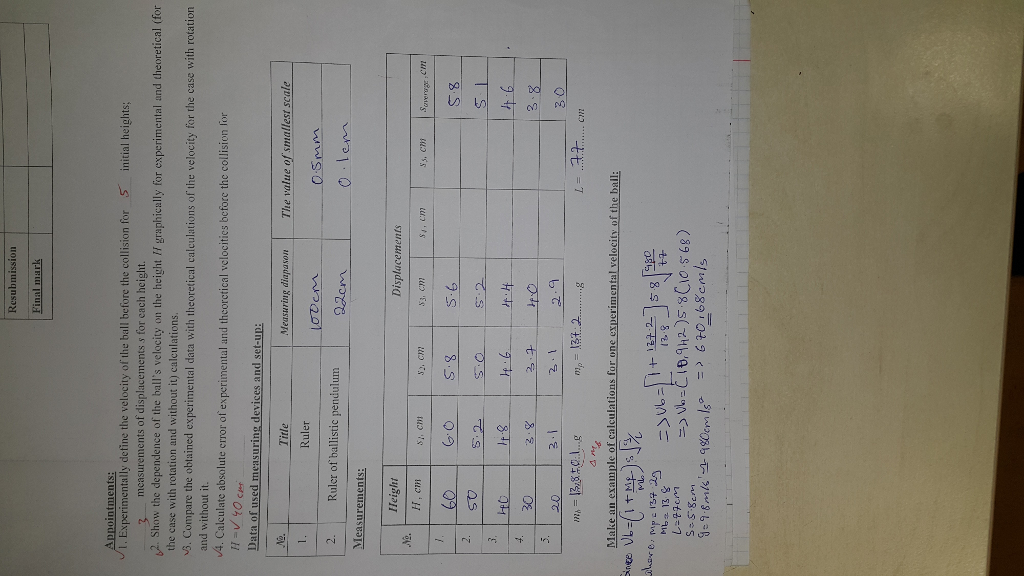 Resubmission
Final mark
Appointments:
1. Experimentally define the velocity of the ball before the collision for 5 initial heights;
3 measurements of displacements s for each height.
2. Show the dependence of the ball's velocity on the height H graphically for experimental and theoretical (for
the case with rotation and without it) calculations.
3. Compare the obtained experimental data with theoretical calculations of the velocity for the case with rotation
and without it.
4. Calculate absolute error of experimental and theoretical velocities before the collision for
H = 40 cm
Data of used measuring devices and set-up:
№. Title Measuring diapason The value of smallest scale
1. Ruler 100cm 0.5mm
2. Ruler of ballistic pendulum 22cm 0.1cm
Measurements:
№. Height H, cm Displacements
s1, cm s2, cm s3, cm s4, cm s5, cm saverage, cm
1. 60 6.0 5.8 5.6 5.8
2. 50 5.2 5.0 5.2 5.1
3. 40 4.8 4.6 4.4 4.6
4. 30 3.8 3.7 4.0 3.8
5. 20 3.1 3.1 2.9 3.0
mb = 13.8±0.1 g mp = 137.2 g L = 77 cm
Make an example of calculations for one experimental velocity of the ball:
Since Vb = (1 + mp/mb) s √g/L
where, mp = 137.2g
mb = 13.8
L = 77cm
S = 5.8cm
g = 9.8m/s² => 980cm/s²
=> Vb = [1 + 137.2/13.8] 5.8 √980/77
=> Vb = (10.942) 5.8 (10.568)
=> 670.68cm/s